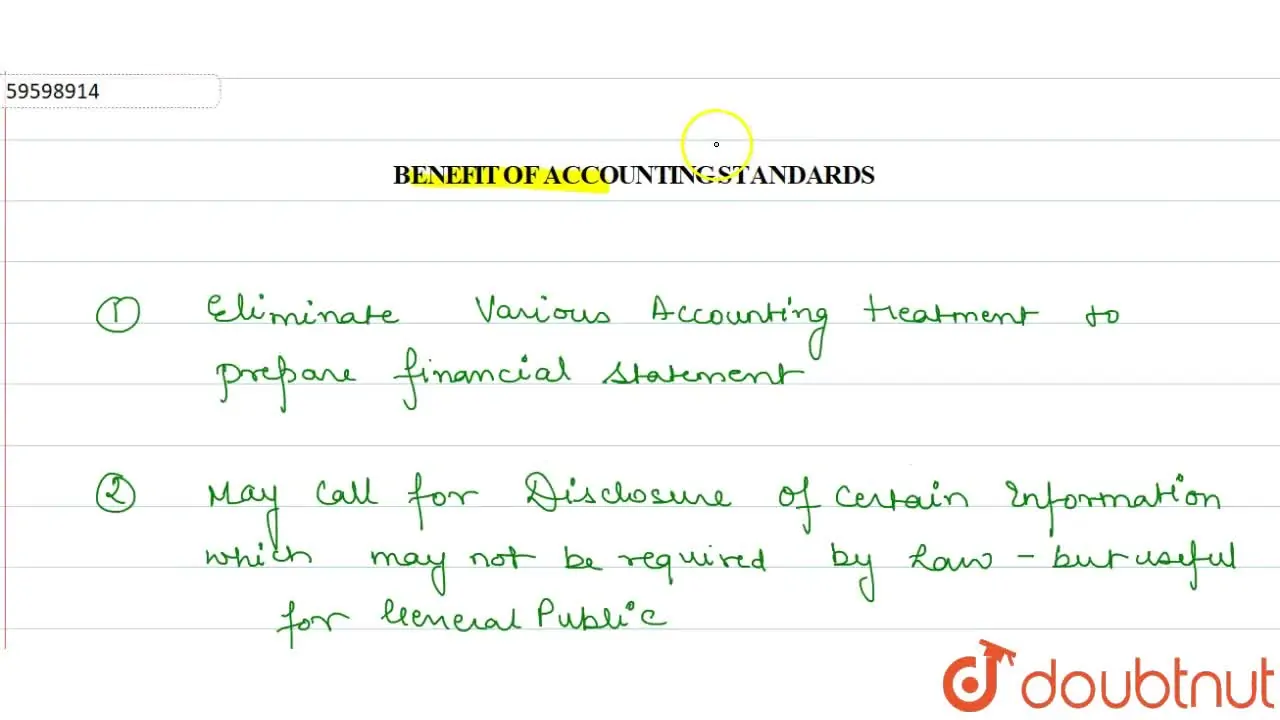 59598914
BENEFIT OF ACCOUNTING STANDARDS
① Eliminate Various Accounting treatment to
prepare financial statement
② May Call for Disclosure of Certain Information
which may not be required by Law - but useful
for General Public
doubtnut